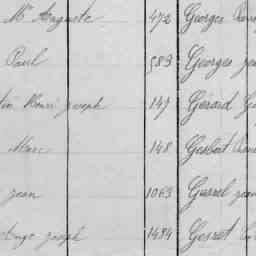 Me Auguste 472 Georges
Paul 583 Georges
Henri joseph 149 Gérard
Marc 148 Gerbert
jean 1063 Gerrel jean
Ange joseph 1484 Gerret